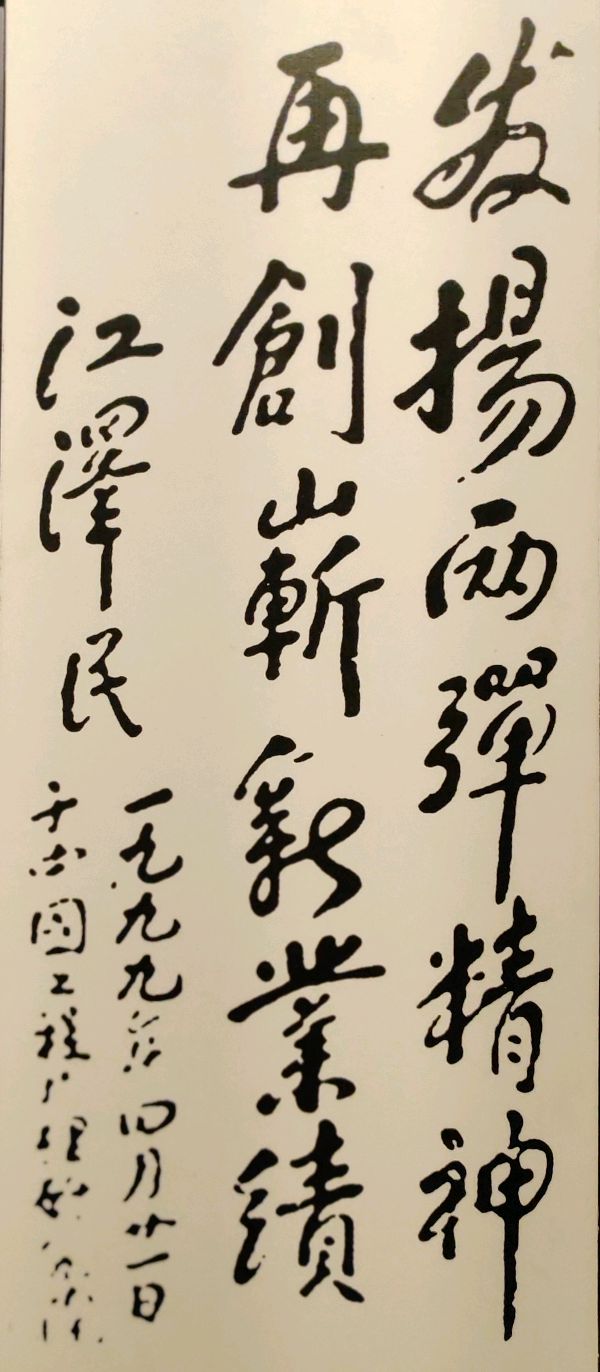 发揚两彈精神
再創嶄新業績
江澤民
一九九九年四月廿一日
于中國工程物理